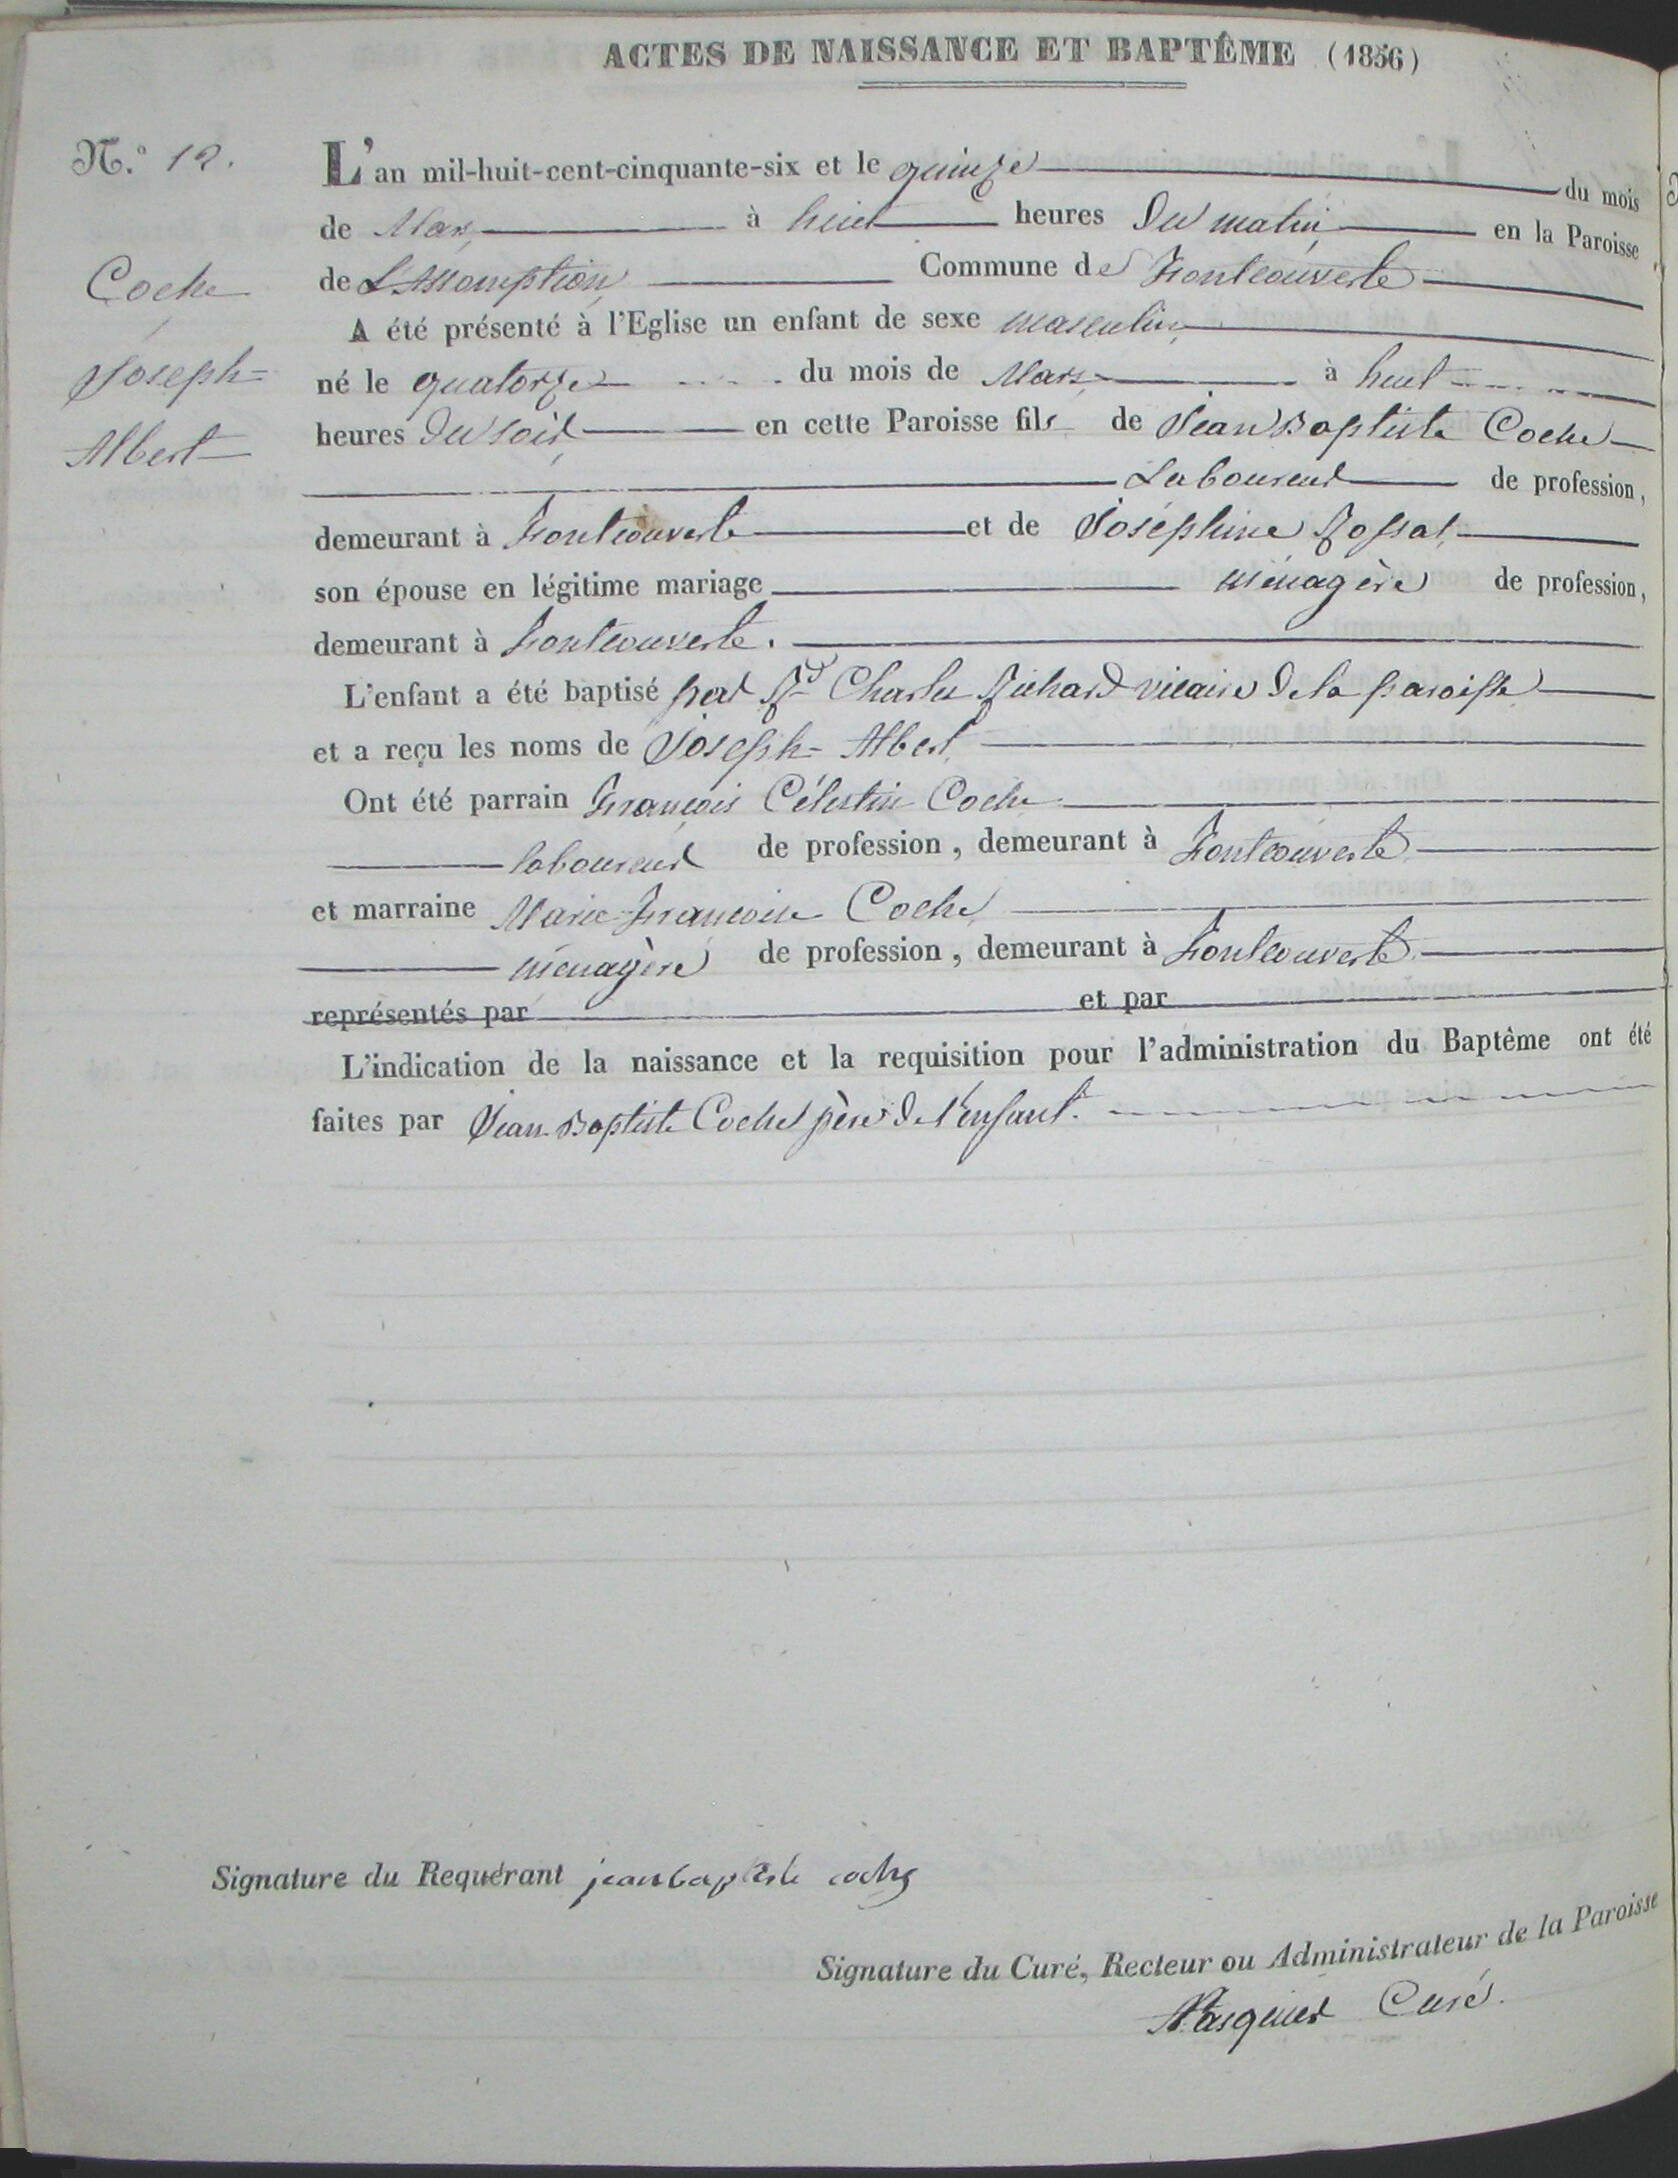 ACTES DE NAISSANCE ET BAPTÊME (1856)
N.° 12.
L'an mil-huit-cent-cinquante-six et le quinze du mois
de Mars à huit heures du matin en la Paroisse
Coche
de L'Assomption Commune de Fontcouverte
A été présenté à l'Eglise un enfant de sexe masculin
Joseph
né le quatorze du mois de Mars à huit
Albert
heures du soir en cette Paroisse fils de Jean Baptiste Coche
Laboureur de profession,
demeurant à Fontcouverte et de Joséphine Rossat
son épouse en légitime mariage ménagère de profession,
demeurant à Fontcouverte.
L'enfant a été baptisé par Rd Charles Richard vicaire de la paroisse
et a reçu les noms de Joseph-Albert
Ont été parrain François Célestin Coche
laboureur de profession, demeurant à Fontcouverte
et marraine Marie-Françoise Coche
ménagère de profession, demeurant à Fontcouverte
représentés par et par
L'indication de la naissance et la requisition pour l'administration du Baptême ont été
faites par Jean-Baptiste Coche père de l'enfant.
Signature du Requérant jean baptiste coche
Signature du Curé, Recteur ou Administrateur de la Paroisse
Pasquier Curé.